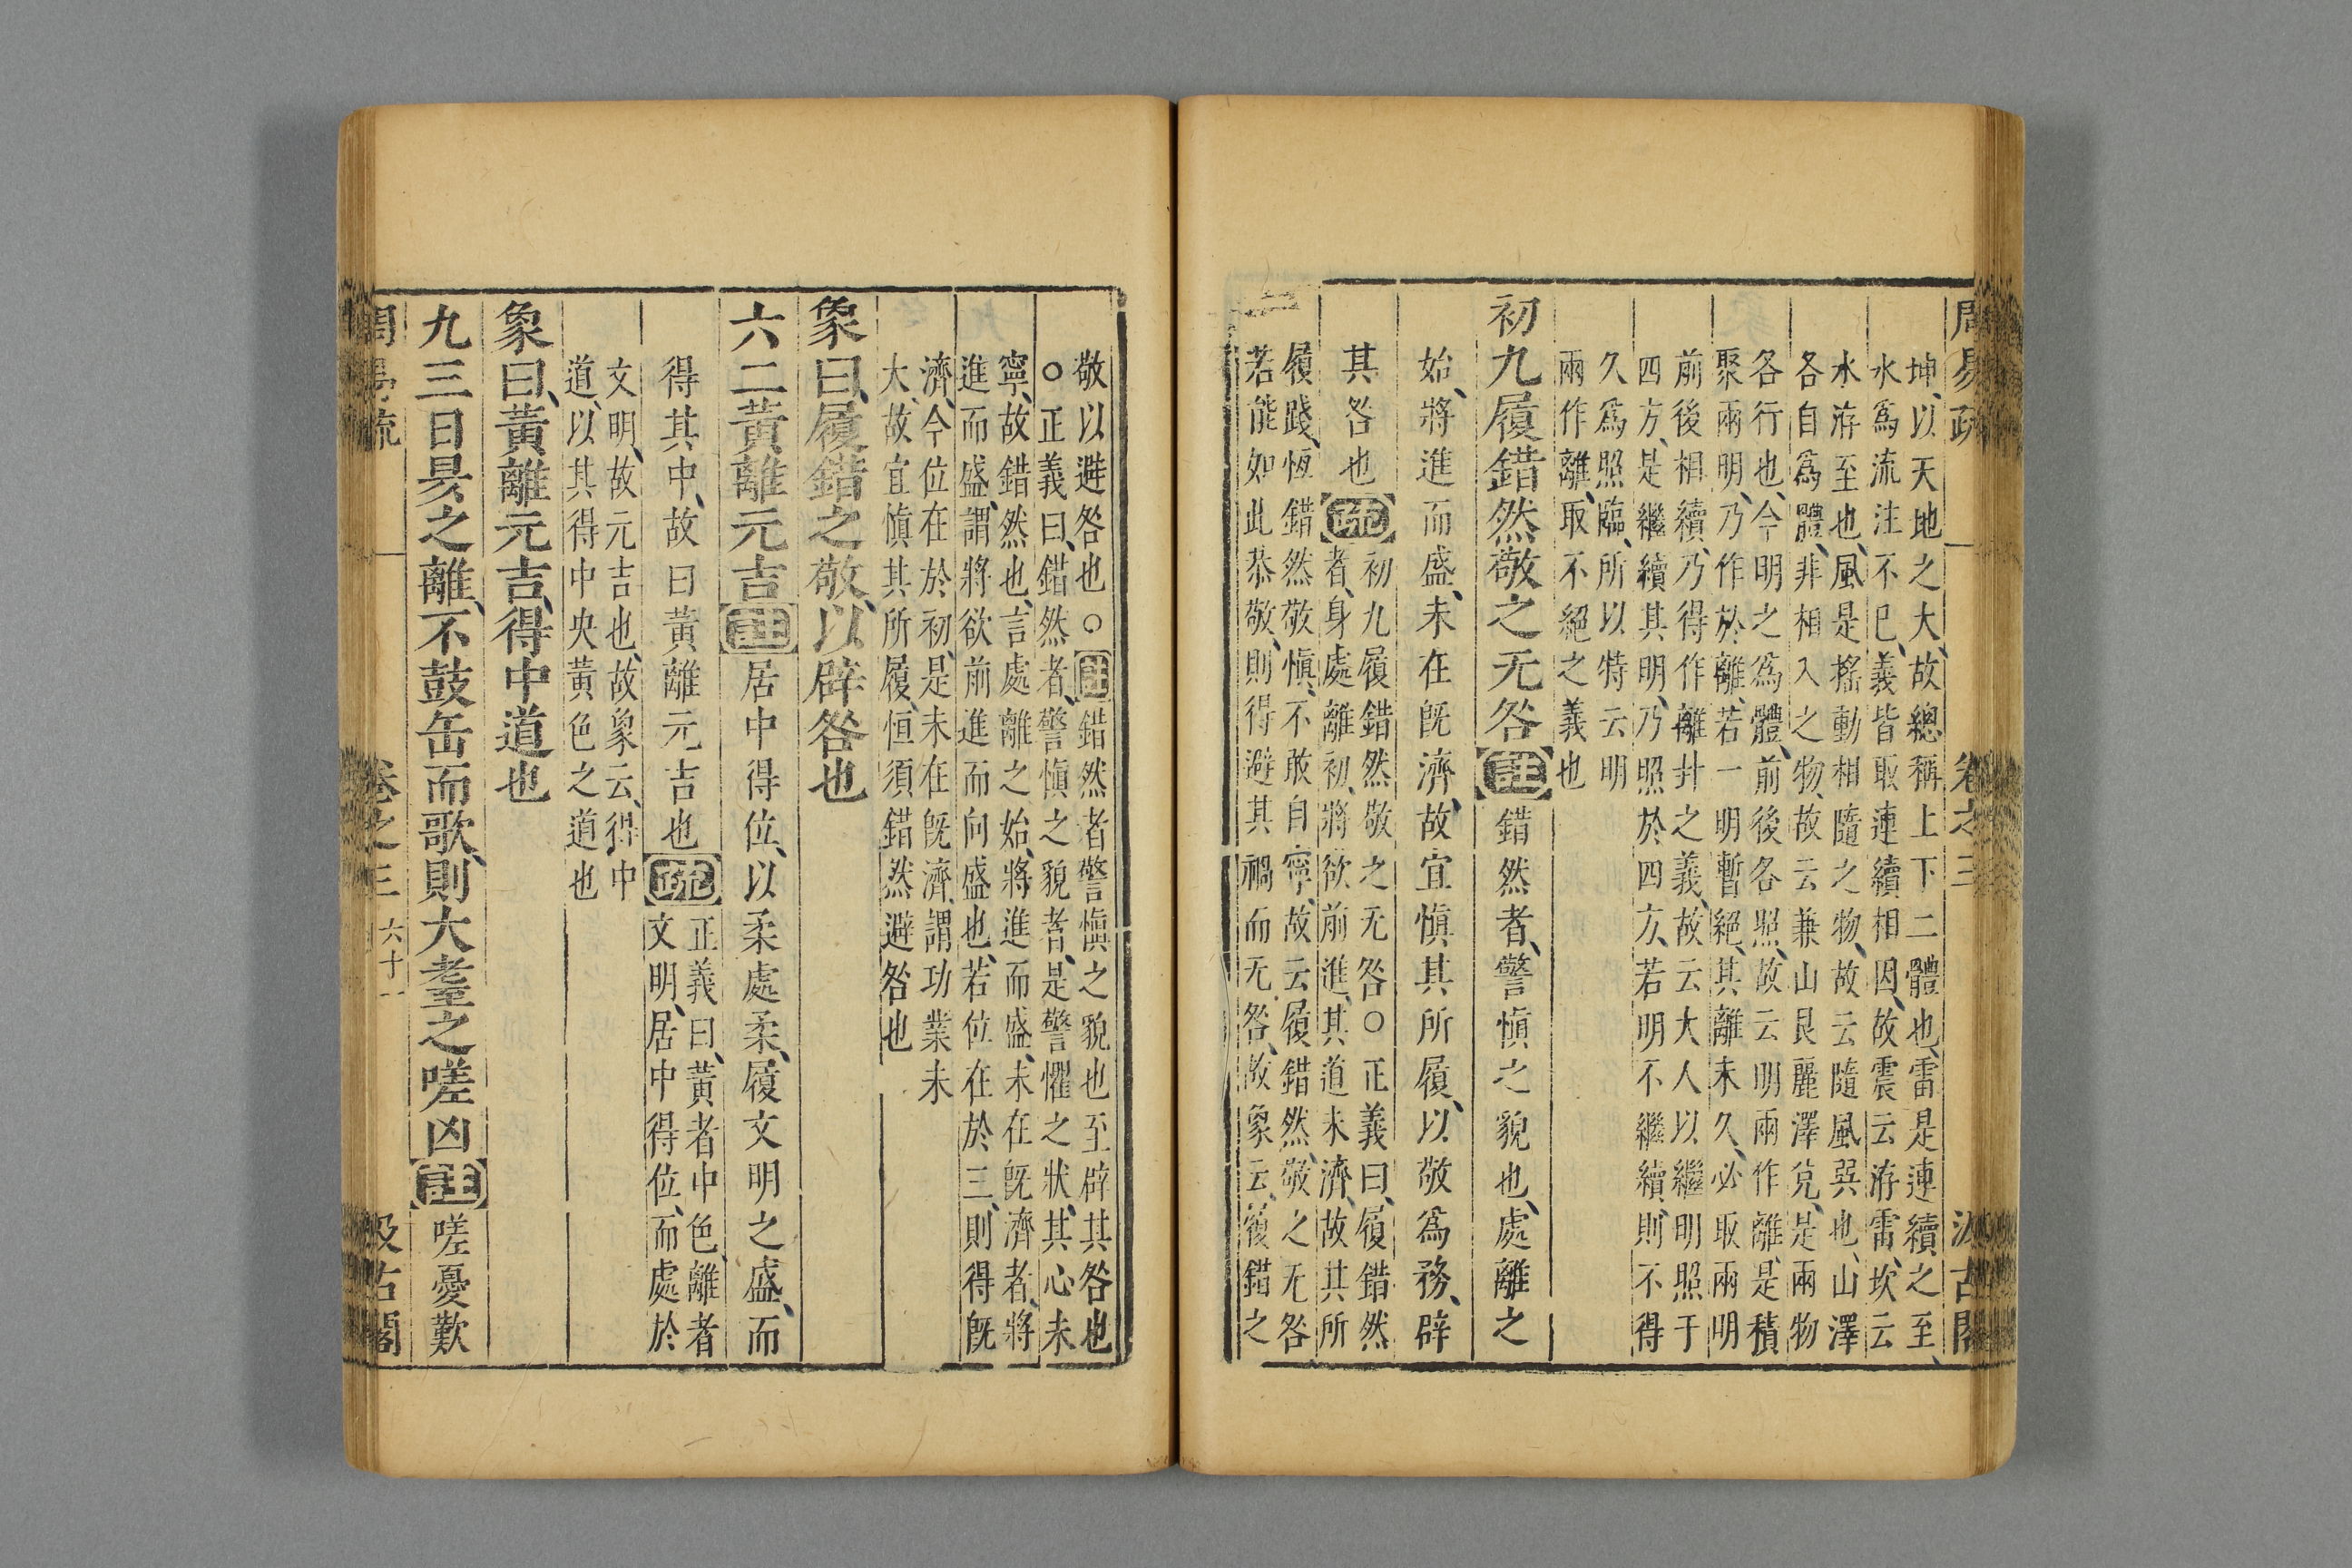 周易疏 卷之三 汲古閣
坤、以天地之大、故總稱上下二體也、雷是連續之至、
水爲流注不已、義皆取連續相因、故震云洊雷、坎云
水洊至也、風是搖動相隨之物、故云隨風巽也、山澤
各自爲體、非相入之物、故云兼山艮麗澤兌、是兩物
各行也、今明之爲體、前後各照、故云明兩作離、是積
聚兩明、乃作於離、若一明暫絕、其離未久、必取兩明
前後相續、乃得作離卦之義、故云大人以繼明照于
四方、是繼續其明、乃照於四方、若明不繼續、則不得
久爲照臨、所以特云明
兩作離、取不絕之義也
初九履錯然敬之无咎註錯然者、警慎之貌也、處離之
始、將進而盛、未在既濟、故宜慎其所履、以敬爲務、辟
其咎也疏
初九履錯然敬之无咎○正義曰、履錯然
者、身處離初、將欲前進、其道未濟、故其所
履踐、恆錯然敬慎、不敢自寧、故云履錯然、敬之无咎、
若能如此恭敬、則得避其禍而无咎、故象云、履錯之
敬以避咎也○註錯然者警慎之貌也至辟其咎也
○正義曰、錯然者、警慎之貌者、是警懼之狀、其心未
寧、故錯然也、言處離之始、將進而盛、未在既濟者、將
進而盛、謂將欲前進而向盛也、若位在於三、則得既
濟、今位在於初、是未在既濟、謂功業未
大、故宜慎其所履、恒須錯然避咎也
象曰、履錯之敬、以辟咎也
六二黃離元吉註居中得位、以柔處柔、履文明之盛、而
得其中、故曰黃離元吉也疏
正義曰、黃者中色、離者
文明、居中得位、而處於
文明、故元吉也、故象云、得中
道、以其得中央黃色之道也
象曰、黃離元吉、得中道也
九三日昃之離、不鼓缶而歌、則大耋之嗟凶註嗟憂歎
周易疏 卷之三 六十一 汲古閣